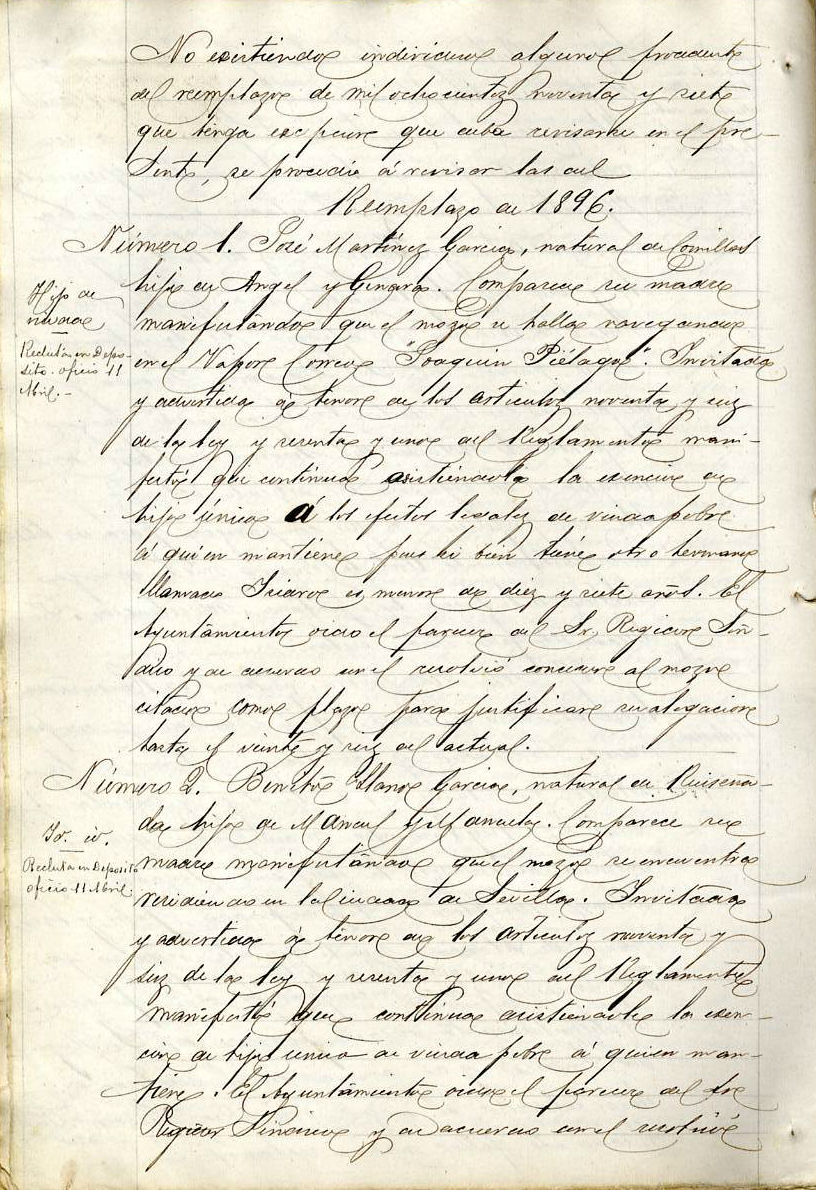 No existiendo individuo alguno procedente
del reemplazo de mil ochocientos noventa y siete
que tenga escepcion que deba revisarse en el pre-
sente, se procedió á revisar las del
Reemplazo de 1896.
Número 1. José Martínez Garcia, natural de Comillas
hijo de Angel y Genara. Comparece su madre
manifestándo que el mozo se halla navegando
en el Vapor Correo "Joaquín Piélago". Invitada
y advertida á tenor de los artículos noventa y seis
de la ley y sesenta y uno del Reglamento mani-
festó que continúa asistiendole la esencion de
hijo único á los efectos legales de viuda pobre
á quien mantiene pues si bien tiene otro hermano
llamado Isidro es menor de diez y siete años. El
Ayuntamiento oido el parecer del Sr. Regidor Sín-
dico y de acuerdo con el resolvió conceder al mozo
citado como plazo para justificar su alegacion
hasta el veinte y seis del actual.
Hijo de
viuda
Recluta en Depo-
sito. oficio 11
Abril.-
Número 2. Benito Llano Garcia, natural de Ruiseña-
da hijo de Manuel y Manuela. Comparece su
madre manifestándo que el mozo se encuentra
residiendo en la ciudad de Sevilla. Invitada
y advertida á tenor de los artículos noventa y
seis de la ley y sesenta y uno del Reglamento
manifestó que continua asistiendole la esen-
cion de hijo unico de viuda pobre á quien man-
tiene. El Ayuntamiento oido el parecer del Sr
Regidor Síndico y de acuerdo con el resolvió
Id. id.
Recluta en Deposito
oficio 11 Abril.